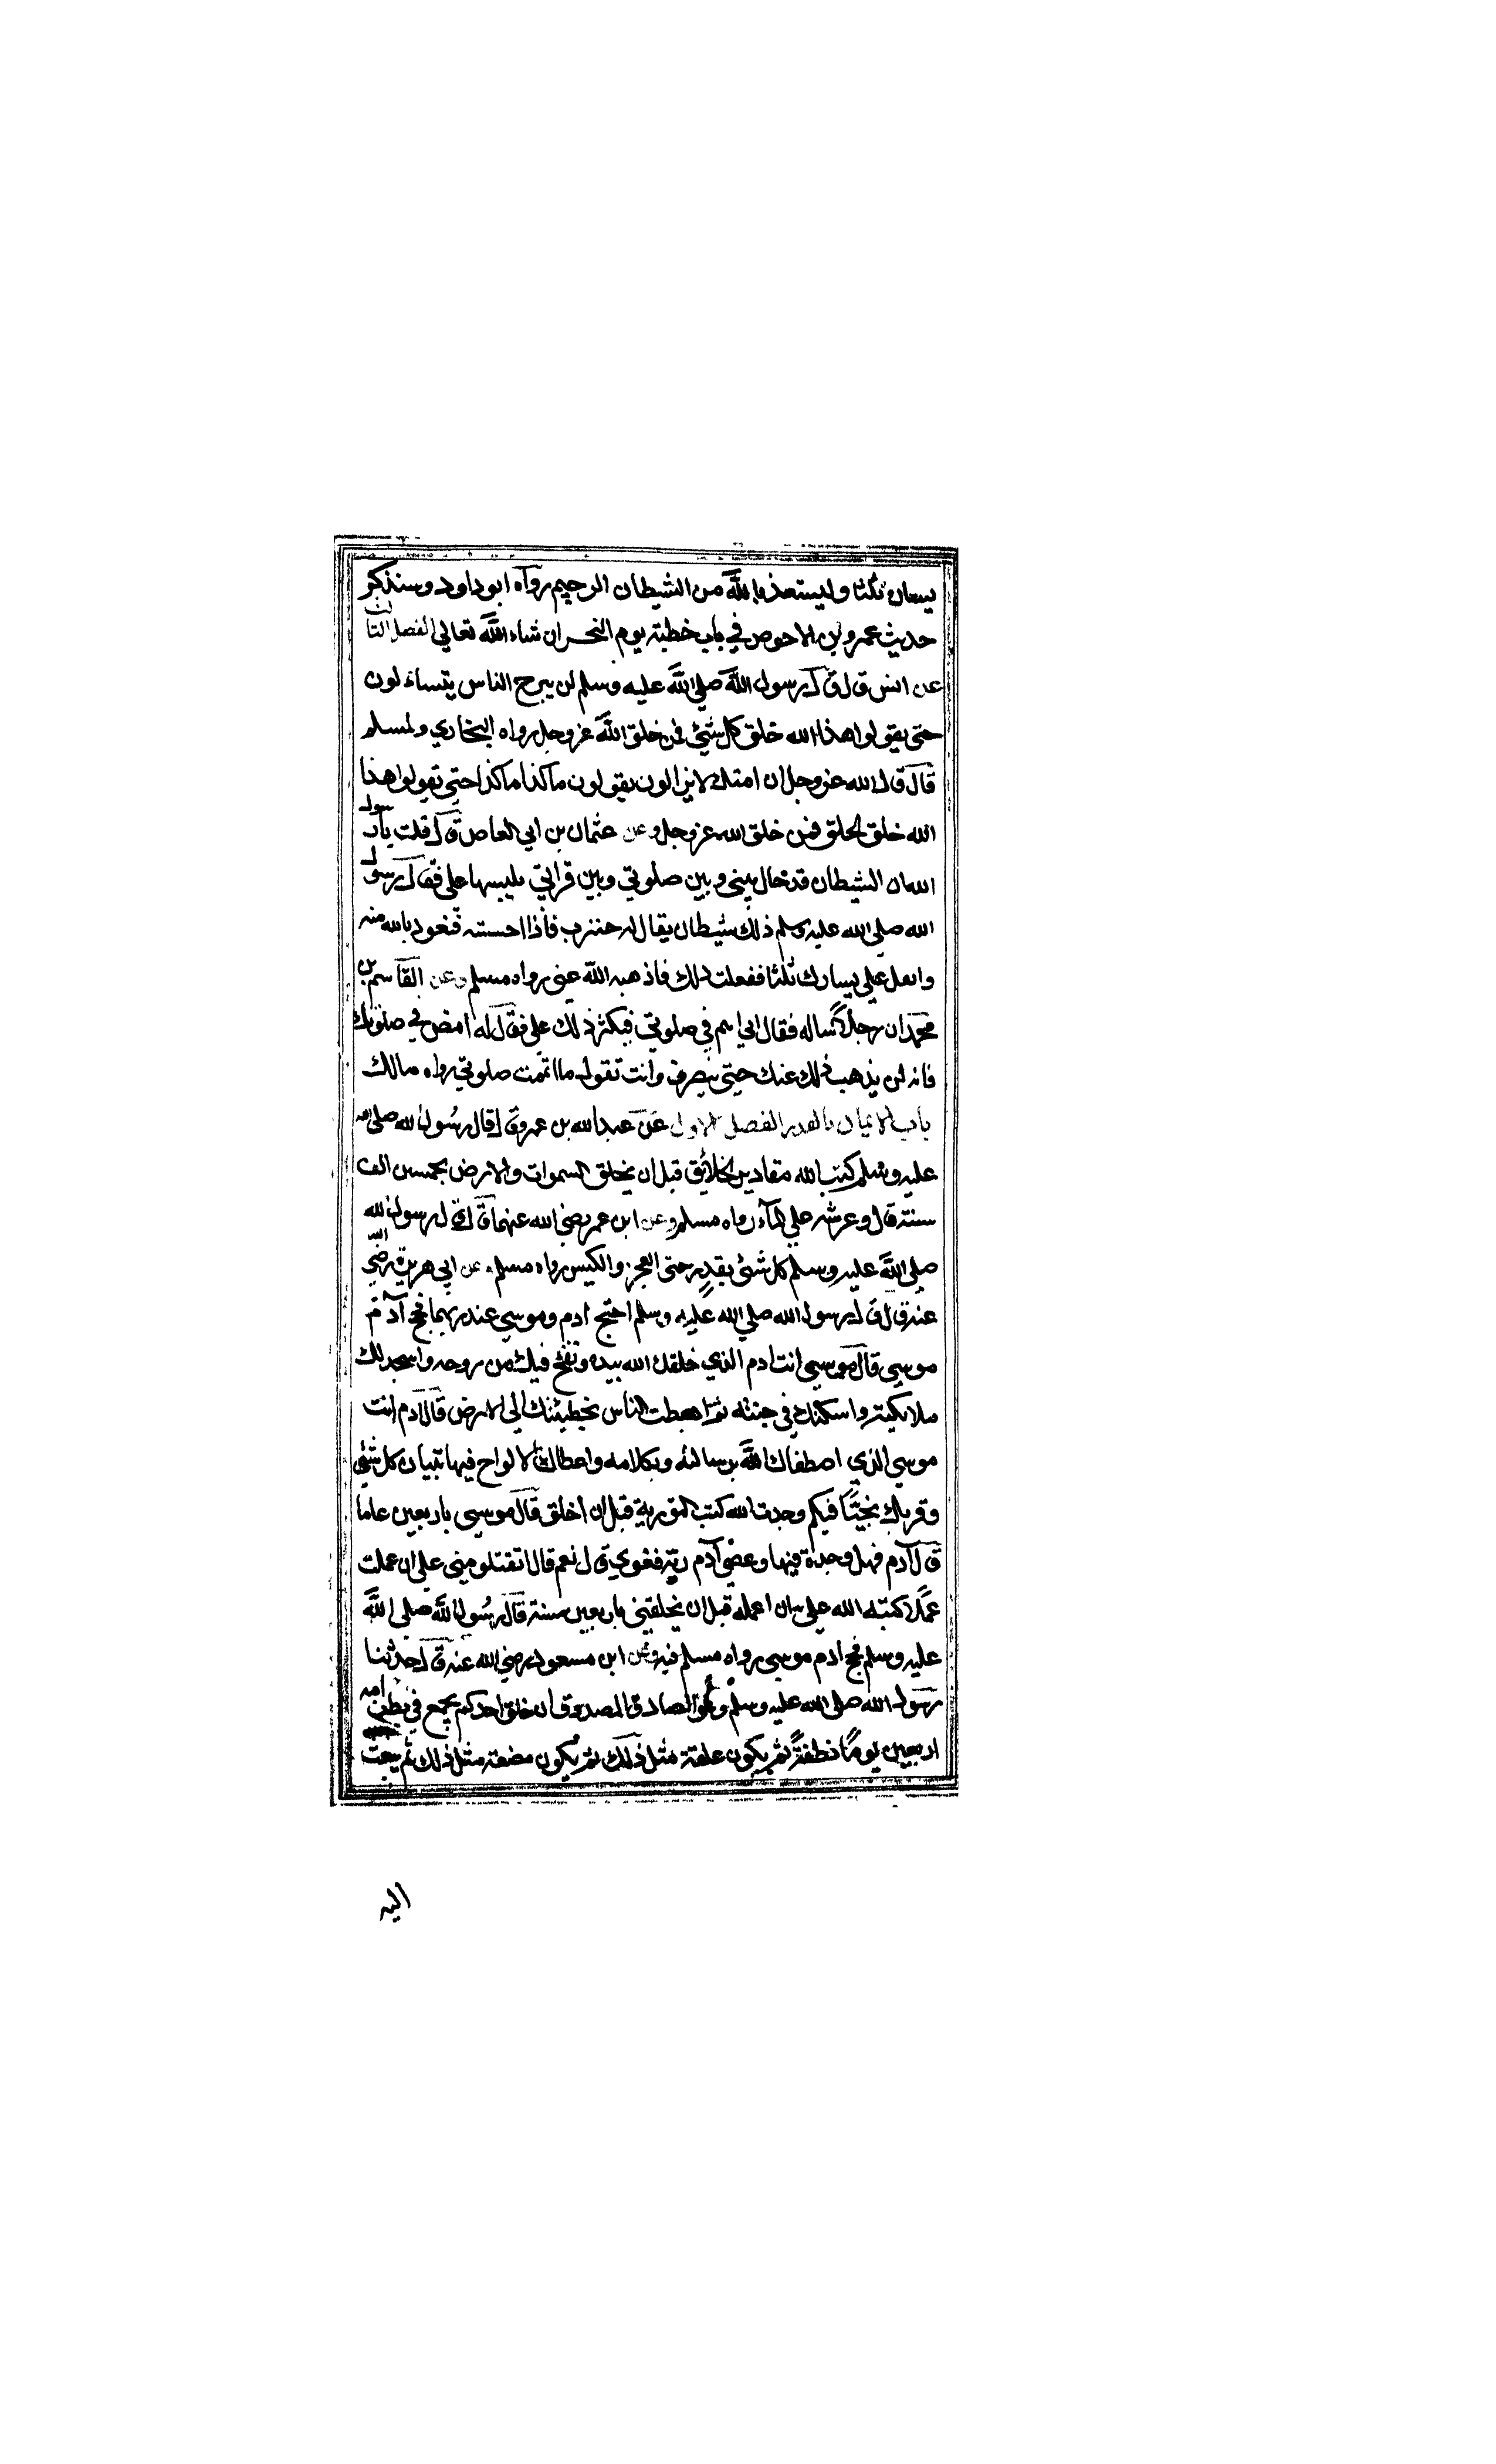 يساره ثلثا وليستعذ بالله من الشيطان الرجيم رواه ابوداود وسنذكر
حديث عمرو بن الاحوص في باب خطبة يوم النحر ان شاء الله تعالي الفصل الثالث
عن انس قال قال رسول الله صلي الله عليه وسلم لن يبرح الناس يتساءلون
حتي يقولوا هذا الله خلق كل شئ فمن خلق الله عزوجل رواه البخاري ولمسلم
قال قال الله عزوجل ان امتك لا يزالون يقولون ما كذا ما كذا حتي يقولوا هذا
الله خلق الخلق فمن خلق الله عزوجل وعن عثمان بن ابي العاص قال قلت يا رسول
الله ان الشيطان قد حال بيني وبين صلوتي وبين قرأتي يلبسها علي فقال رسول
الله صلي الله عليه وسلم ذلك شيطان يقال له خنزب فاذا احسسته فتعوذ بالله منه
واتفل علي يسارك ثلثا ففعلت ذلك فاذهبه الله عني رواه مسلم وعن القاسم بن
محمد ان رجلا ساله فقال اني اهم في صلوتي فيكثر ذلك علي فقال له امض في صلوتك
فانه لن يذهب ذلك عنك حتي تنصرف وانت تقول ما اتممت صلوتي رواه مالك
باب الايمان بالقدر الفصل الاول عن عبدالله بن عمرو قال قال رسول الله صلي الله
عليه وسلم كتب الله مقادير الخلائق قبل ان يخلق السموات والارض بخمسين الف
سنة قال وعرشه علي الماء رواه مسلم وعن ابن عمر رضي الله عنهما قال قال رسول الله
صلي الله عليه وسلم كل شئ بقدر حتي العجز والكيس رواه مسلم عن ابي هريرة رضي الله
عنه قال قال رسول الله صلي الله عليه وسلم احتج ادم وموسي عند ربهما فحج آدم
موسي قال موسي انت ادم الذي خلقك الله بيده ونفخ فيك من روحه واسجد لك
ملائكته واسكنك في جنته ثم اهبطت الناس بخطيئتك الي الارض قال آدم انت
موسي الذي اصطفاك الله برسالته وبكلامه واعطاك الالواح فيها تبيان كل شئ
وقربك نجيا فبكم وجدت الله كتب التورية قبل ان اخلق قال موسي باربعين عاما
قال آدم فهل وجدت فيها وعصي آدم ربه فغوي قال نعم قال اتقتلومني علي ان عملت
عملا كتبه الله علي ان اعمله قبل ان يخلقني باربعين سنة قال رسول الله صلي الله
عليه وسلم فحج ادم موسي رواه مسلم فيه وعن ابن مسعود رضي الله عنه قال حدثنا
رسول الله صلي الله عليه وسلم وهو الصادق المصدوق ان خلق احدكم يجمع في بطن امه
اربعين يوما نطفة ثم يكون علقة مثل ذلك ثم يكون مضغة مثل ذلك ثم يبعث
اليه